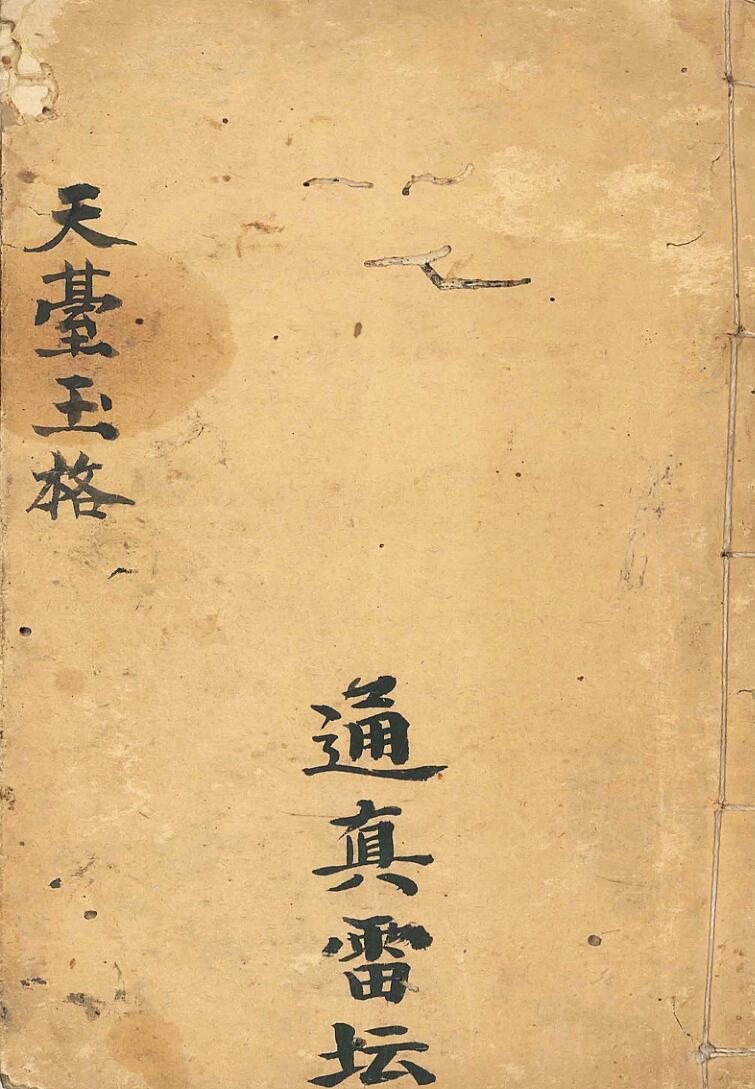 天臺玉格
通真雷坛